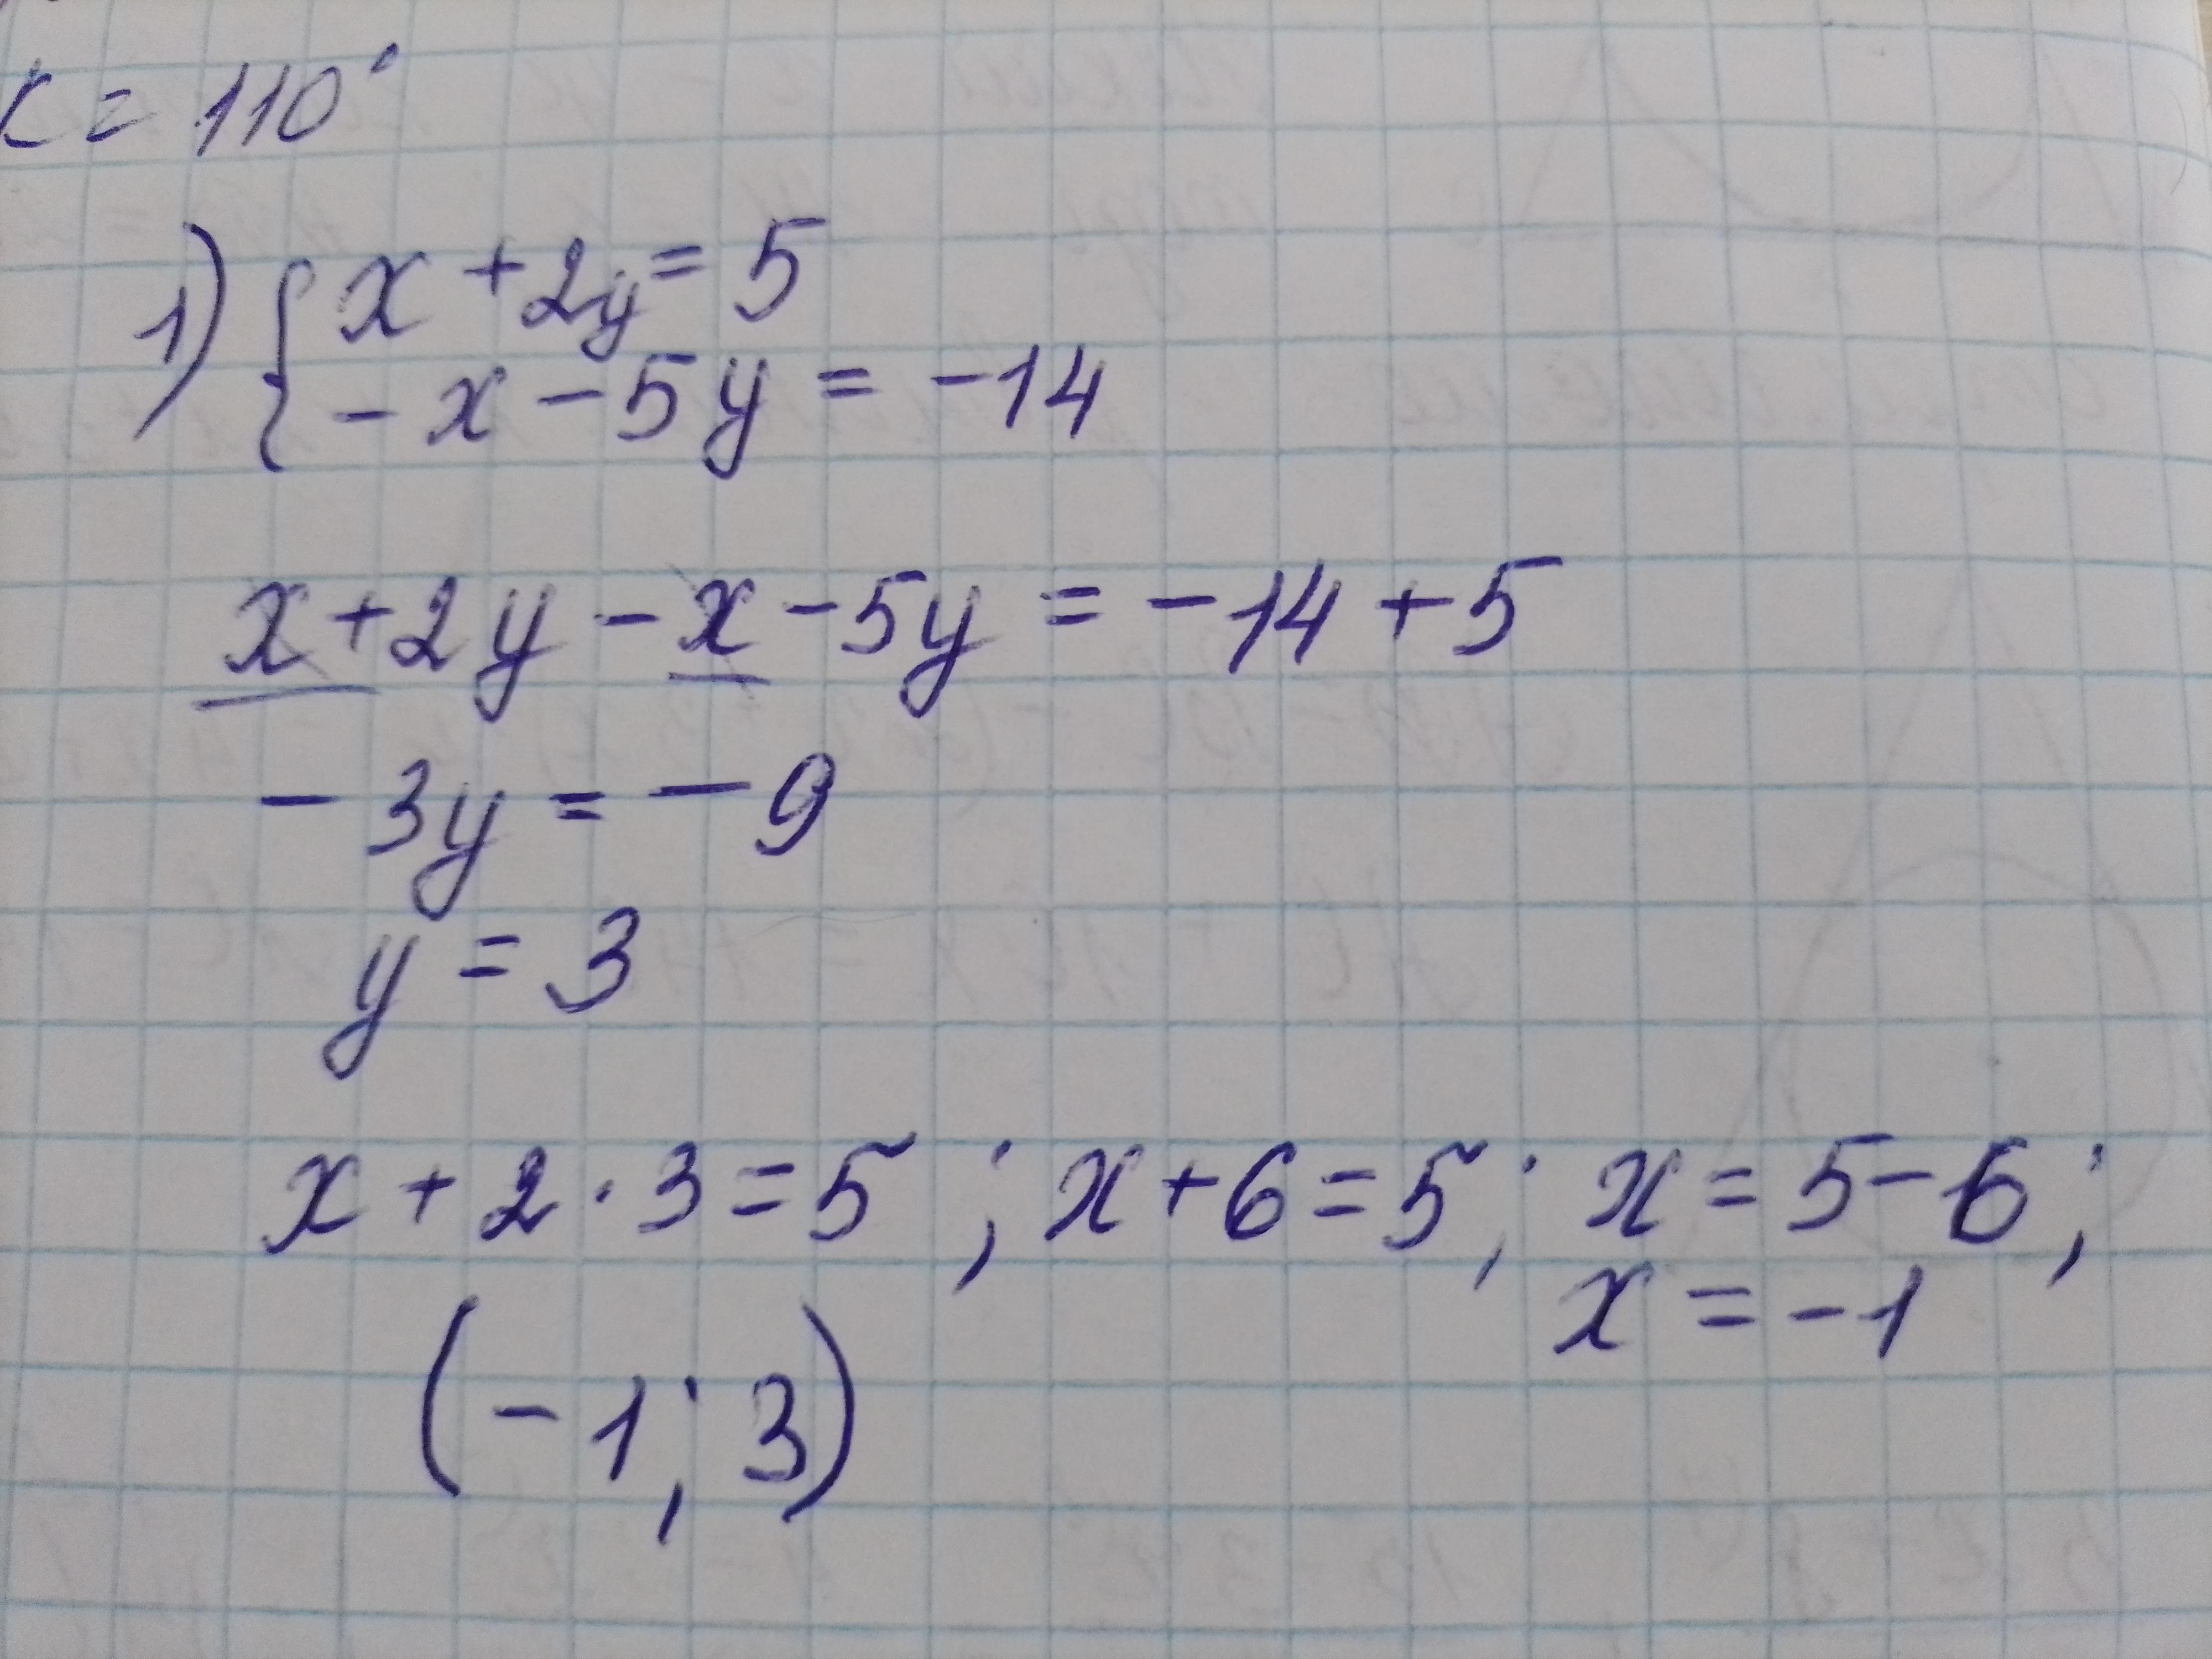 = 110°
1) { x + 2y = 5
- x - 5y = -14
x + 2y - x - 5y = -14 + 5
- 3y = - 9
y = 3
x + 2 · 3 = 5 ; x + 6 = 5 ; x = 5 - 6 ;
x = - 1
(- 1 ; 3)